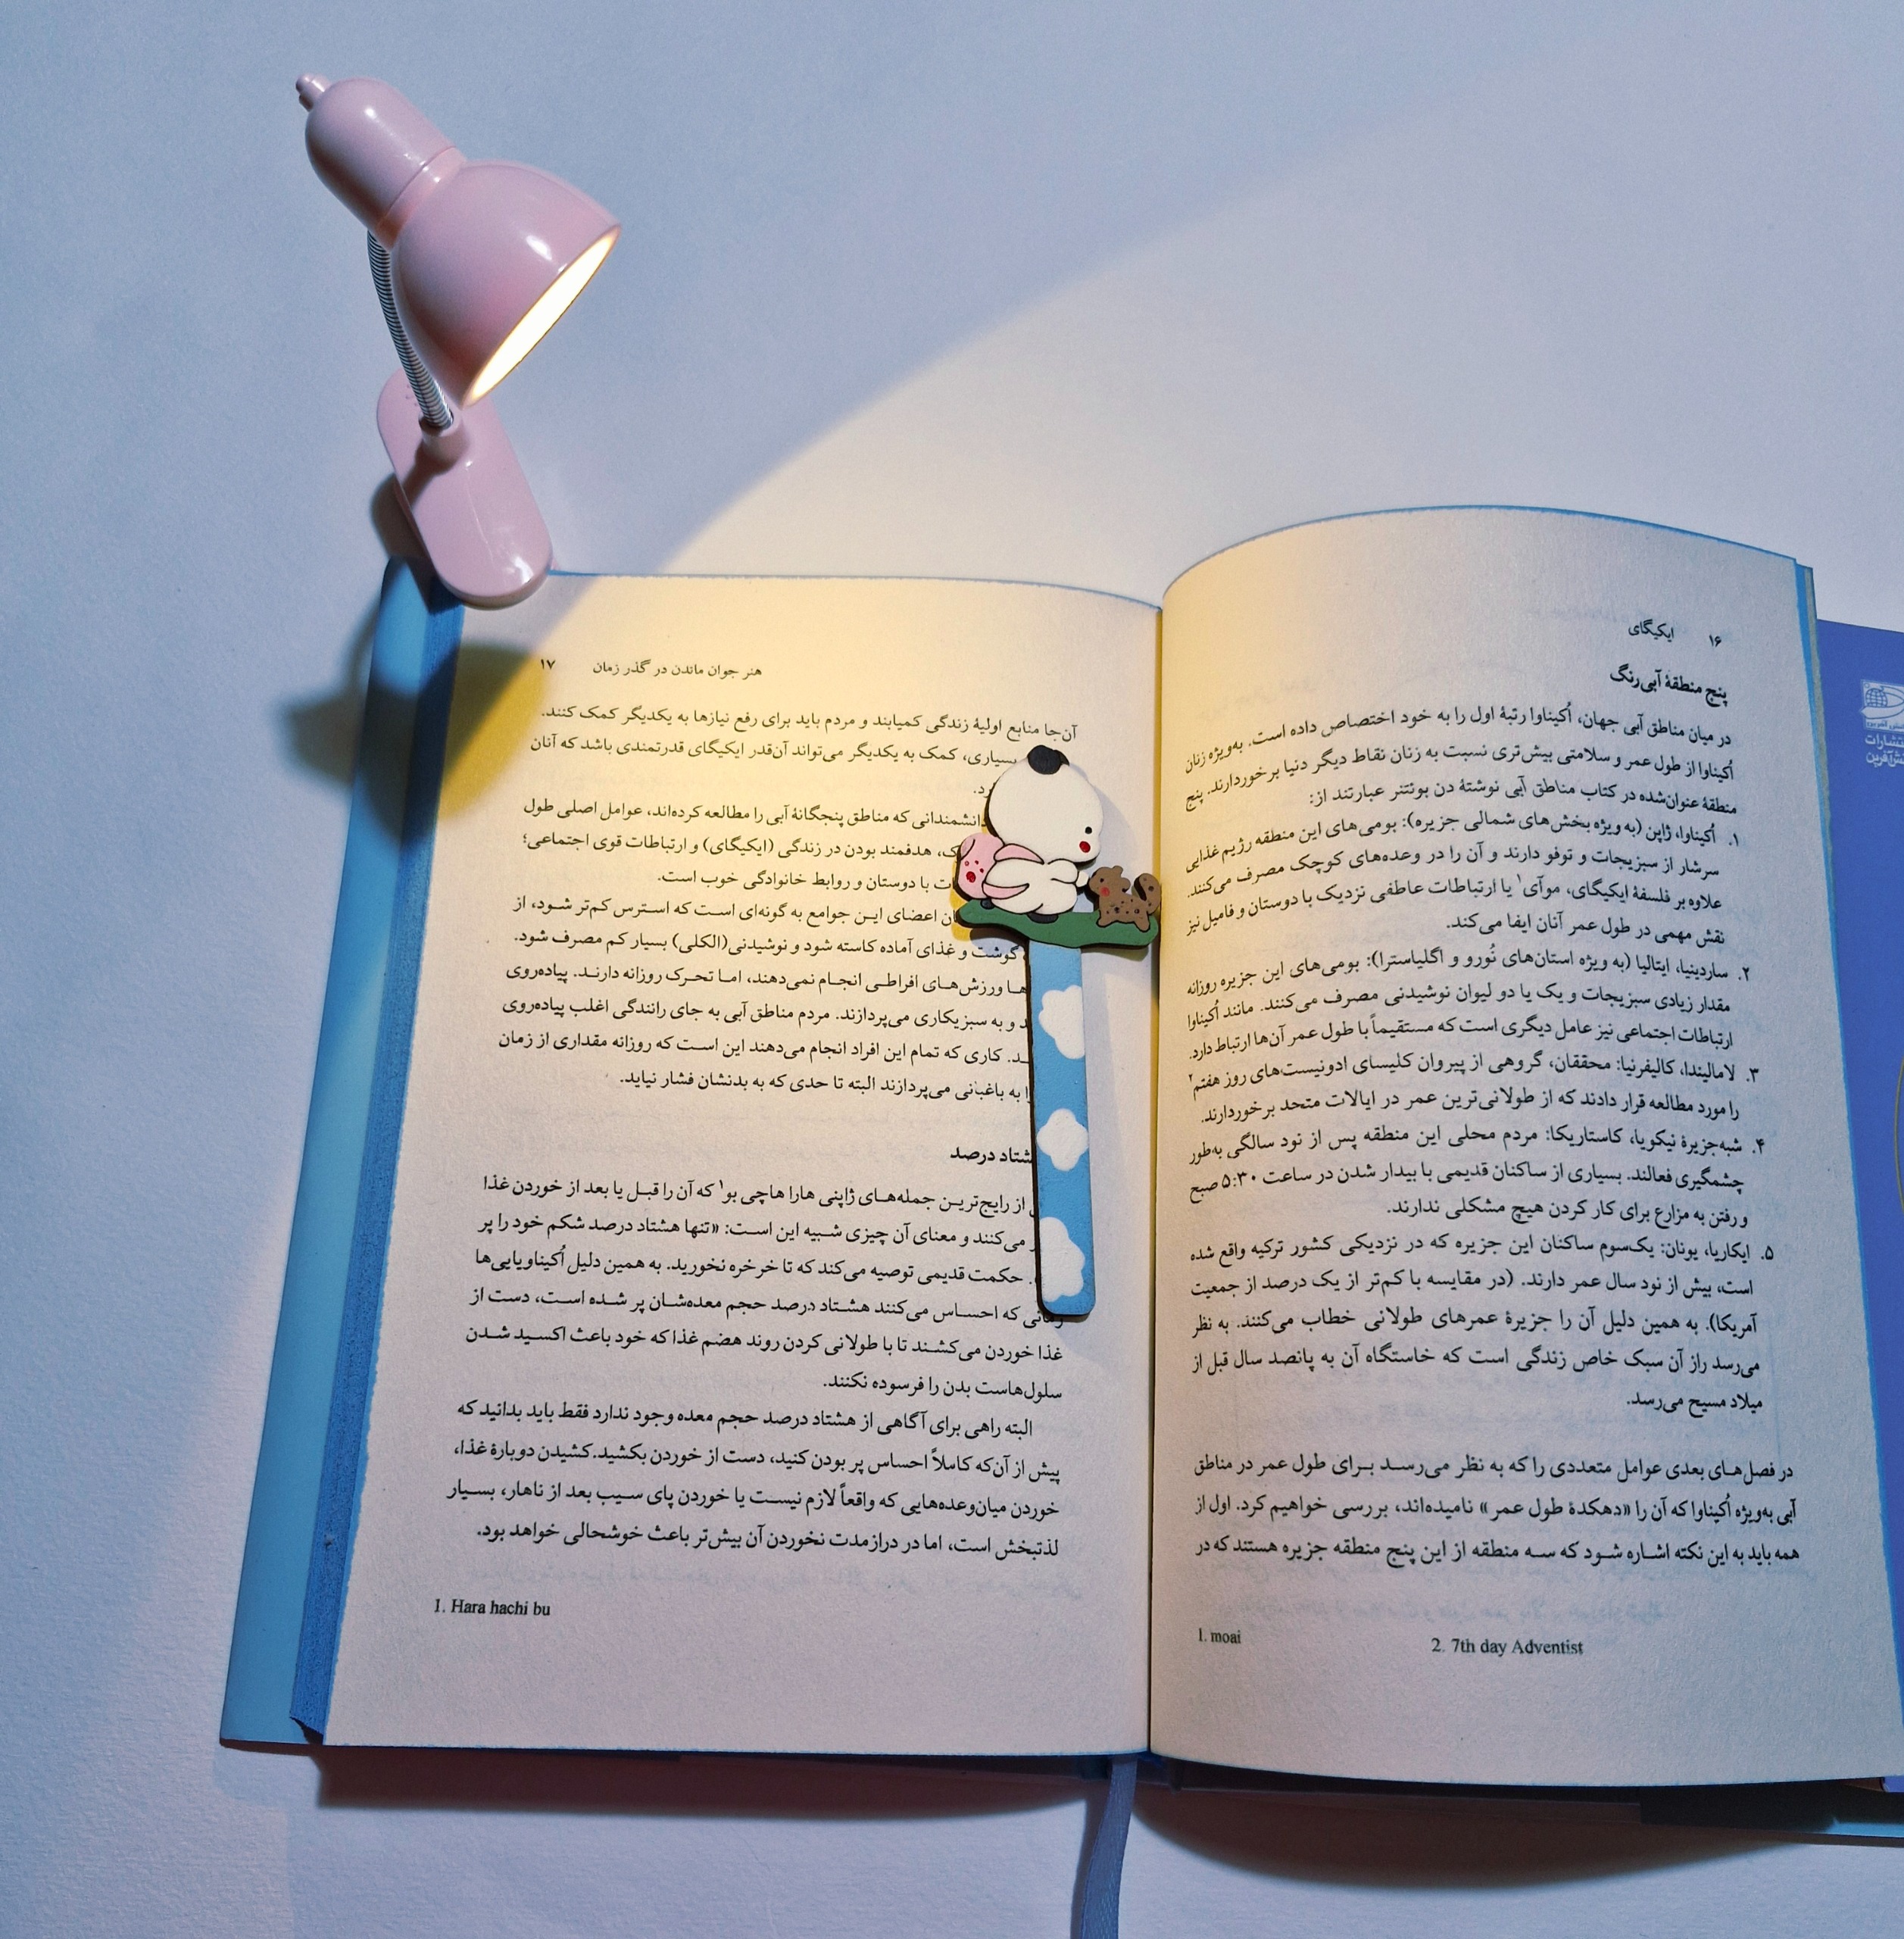 ۱۶ ایکیگای
پنج منطقهٔ آبی‌رنگ
در میان مناطق آبی جهان، اُکیناوا رتبهٔ اول را به خود اختصاص داده است. به‌ویژه زنان
اُکیناوا از طول عمر و سلامتی بیش‌تری نسبت به زنان نقاط دیگر دنیا برخوردارند. پنج
منطقهٔ عنوان‌شده در کتاب مناطق آبی نوشتهٔ دن بوئتنر عبارتند از:
۱. اُکیناوا، ژاپن (به ویژه بخش‌های شمالی جزیره): بومی‌های این منطقه رژیم غذایی
سرشار از سبزیجات و توفو دارند و آن را در وعده‌های کوچک مصرف می‌کنند.
علاوه بر فلسفهٔ ایکیگای، موآی۱ یا ارتباطات عاطفی نزدیک با دوستان و فامیل نیز
نقش مهمی در طول عمر آنان ایفا می‌کند.
۲. ساردینیا، ایتالیا (به ویژه استان‌های نُورو و اگلیاسترا): بومی‌های این جزیره روزانه
مقدار زیادی سبزیجات و یک یا دو لیوان نوشیدنی مصرف می‌کنند. مانند اُکیناوا
ارتباطات اجتماعی نیز عامل دیگری است که مستقیماً با طول عمر آن‌ها ارتباط دارد.
۳. لامالیندا، کالیفرنیا: محققان، گروهی از پیروان کلیسای ادونیست‌های روز هفتم۲
را مورد مطالعه قرار دادند که از طولانی‌ترین عمر در ایالات متحد برخوردارند.
۴. شبه‌جزیرهٔ نیکویا، کاستاریکا: مردم محلی این منطقه پس از نود سالگی به‌طور
چشمگیری فعالند. بسیاری از ساکنان قدیمی با بیدار شدن در ساعت ۵:۳۰ صبح
و رفتن به مزارع برای کار کردن هیچ مشکلی ندارند.
۵. ایکاریا، یونان: یک‌سوم ساکنان این جزیره که در نزدیکی کشور ترکیه واقع شده
است، بیش از نود سال عمر دارند. (در مقایسه با کم‌تر از یک درصد از جمعیت
آمریکا). به همین دلیل آن را جزیرهٔ عمرهای طولانی خطاب می‌کنند. به نظر
می‌رسد راز آن سبک خاص زندگی است که خاستگاه آن به پانصد سال قبل از
میلاد مسیح می‌رسد.
در فصل‌های بعدی عوامل متعددی را که به نظر می‌رسد برای طول عمر در مناطق
آبی به‌ویژه اُکیناوا که آن را «دهکدهٔ طول عمر» نامیده‌اند، بررسی خواهیم کرد. اول از
همه باید به این نکته اشاره شود که سه منطقه از این پنج منطقه جزیره هستند که در
1. moai 2. 7th day Adventist
هنر جوان ماندن در گذر زمان ۱۷
آن‌جا منابع اولیهٔ زندگی کمیابند و مردم باید برای رفع نیازها به یکدیگر کمک کنند.
بسیاری، کمک به یکدیگر می‌تواند آن‌قدر ایکیگای قدرتمندی باشد که آنان
دانشمندانی که مناطق پنجگانهٔ آبی را مطالعه کرده‌اند، عوامل اصلی طول
هدفمند بودن در زندگی (ایکیگای) و ارتباطات قوی اجتماعی؛
با دوستان و روابط خانوادگی خوب است.
اعضای این جوامع به گونه‌ای است که استرس کم‌تر شود، از
گوشت و غذای آماده کاسته شود و نوشیدنی(الکلی) بسیار کم مصرف شود.
ورزش‌های افراطی انجام نمی‌دهند، اما تحرک روزانه دارند. پیاده‌روی
و به سبزیکاری می‌پردازند. مردم مناطق آبی به جای رانندگی اغلب پیاده‌روی
کاری که تمام این افراد انجام می‌دهند این است که روزانه مقداری از زمان
به باغبانی می‌پردازند البته تا حدی که به بدنشان فشار نیاید.
هشتاد درصد
از رایج‌ترین جمله‌های ژاپنی هارا هاچی بو۱ که آن را قبل یا بعد از خوردن غذا
می‌کنند و معنای آن چیزی شبیه این است: «تنها هشتاد درصد شکم خود را پر
حکمت قدیمی توصیه می‌کند که تا خرخره نخورید. به همین دلیل اُکیناویایی‌ها
زمانی که احساس می‌کنند هشتاد درصد حجم معده‌شان پر شده است، دست از
غذا خوردن می‌کشند تا با طولانی کردن روند هضم غذا که خود باعث اکسید شدن
سلول‌هاست بدن را فرسوده نکنند.
البته راهی برای آگاهی از هشتاد درصد حجم معده وجود ندارد فقط باید بدانید که
پیش از آن‌که کاملاً احساس پر بودن کنید، دست از خوردن بکشید.کشیدن دوبارهٔ غذا،
خوردن میان‌وعده‌هایی که واقعاً لازم نیست یا خوردن پای سیب بعد از ناهار، بسیار
لذتبخش است، اما در درازمدت نخوردن آن بیش‌تر باعث خوشحالی خواهد بود.
1. Hara hachi bu